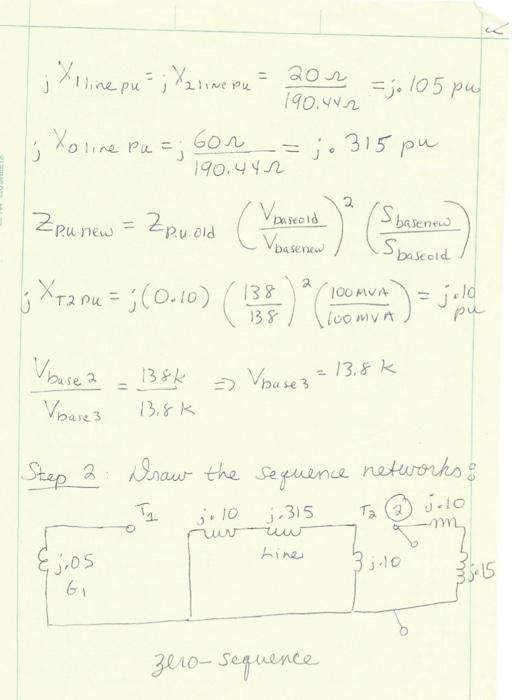 jX1line pu = jX2line pu = 20Ω / 190.44Ω = j.105 pu
jX0line pu = j 60Ω / 190.44Ω = j.315 pu
Zp.u new = Zp.u.old (Vbaseold / Vbasenew)² (Sbasenew / Sbaseold)
jXT2pu = j(0.10) (138 / 138)² (100MVA / 100MVA) = j.10 pu
Vbase2 / Vbase3 = 138k / 13.8k ⇒ Vbase3 = 13.8k
Step 2: Draw the sequence networks:
T1 j.10 j.315 T2 2 j.10
Line
j.05 j.10 j.15
G1
zero-sequence